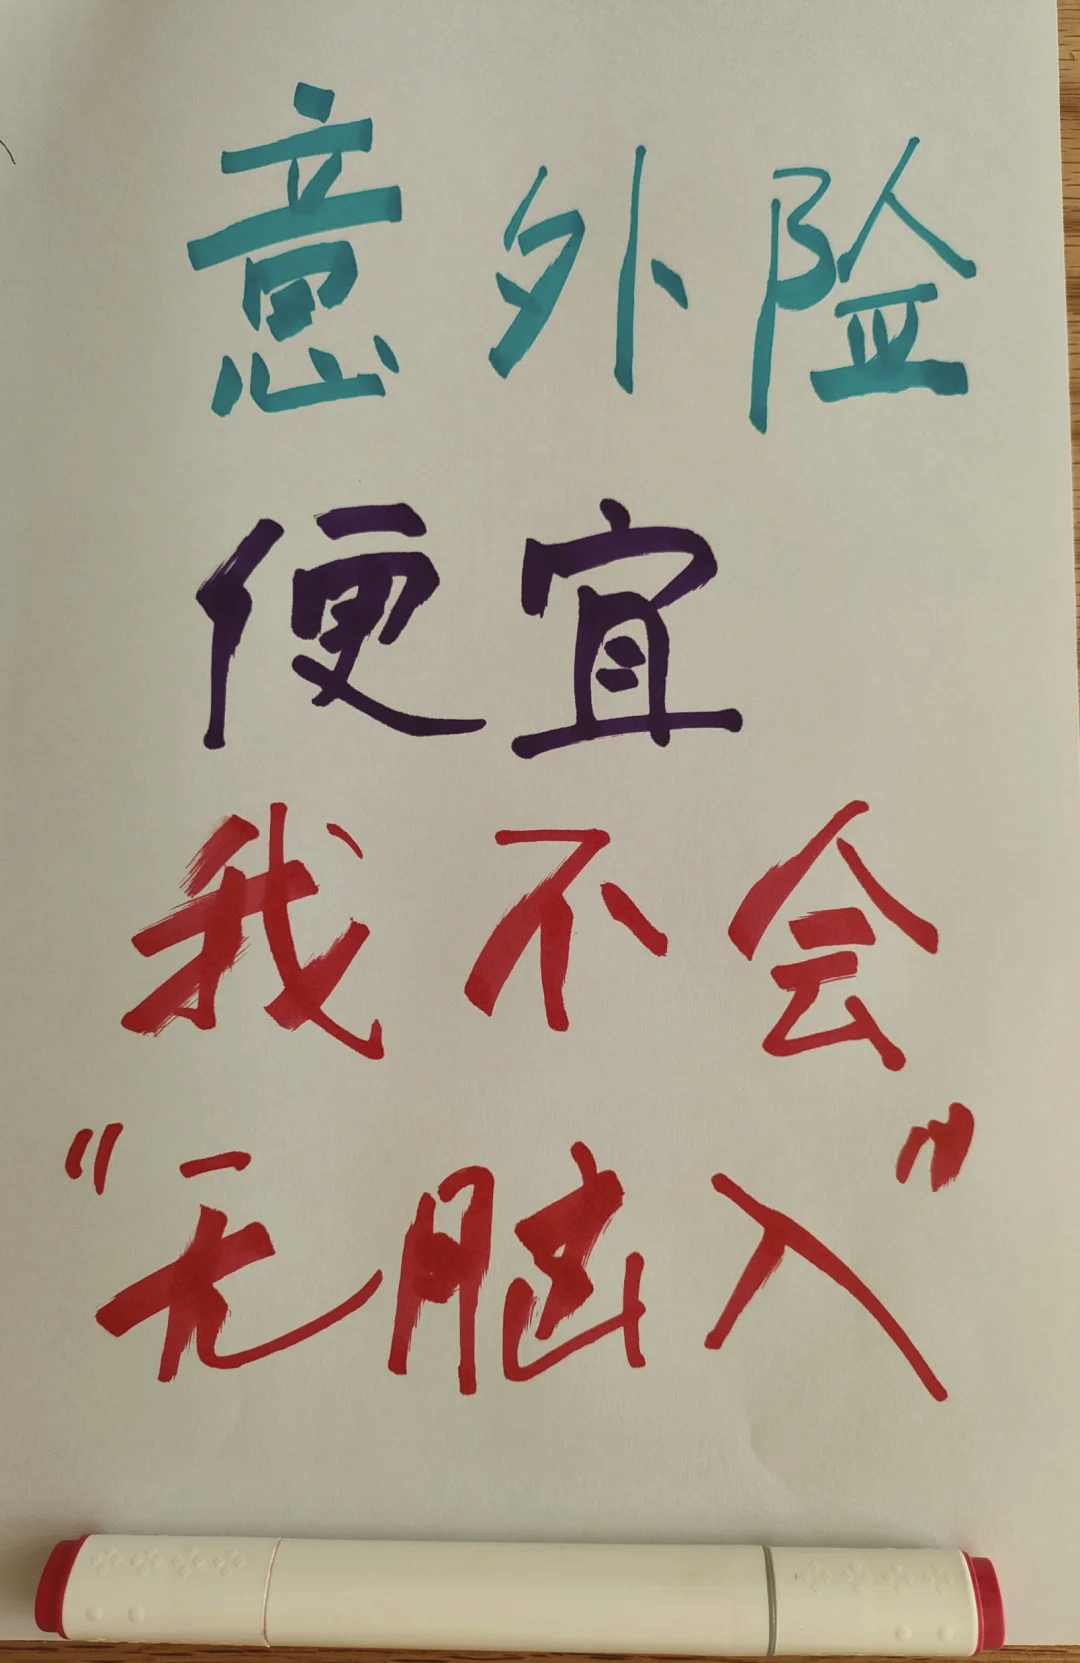 意外险
便宜
我不会
“无脑入”